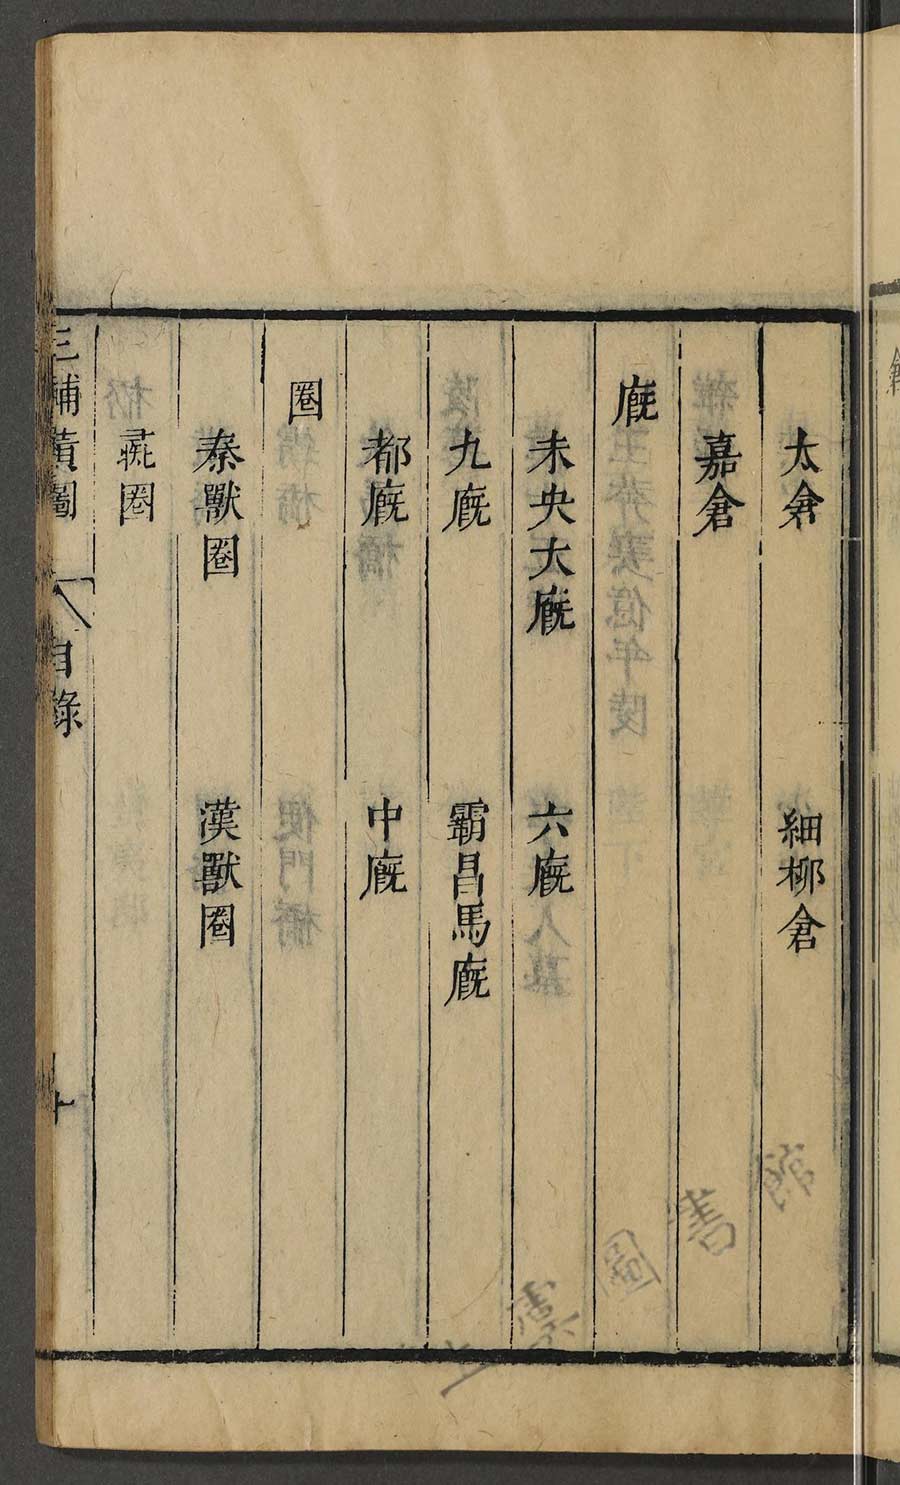 太倉 細柳倉
嘉倉
廐
未央大廐 六廐
九廐 霸昌馬廐
都廐 中廐
圈
秦獸圈 漢獸圈
圈
三輔黃圖 目錄 十
上虞圖書館